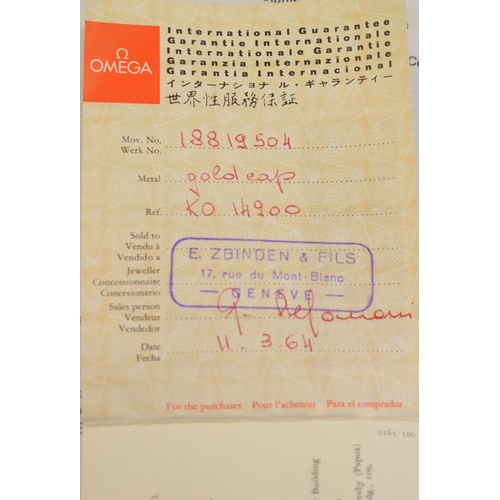 Ω
OMEGA
International Guarantee
Garantie Internationale
Internationale Garantie
Garanzia Internazionale
Garantia Internacional
インターナショナル・ギャランティー
世界性服務保証
Mov. No. 18819504
Werk No.
Metal goldcap
Ref. KO 14900
Sold to
Vendu à
Vendido a
Jeweller
Concessionnaire
Concesionario
E. ZBINDEN & FILS
17, rue du Mont-Blanc
— GENÈVE —
Sales person
Vendeur
Vendedor
Date 11.3.64
Fecha
For the purchaser Pour l'acheteur Para el comprador
0263-300
Building
(Papua)